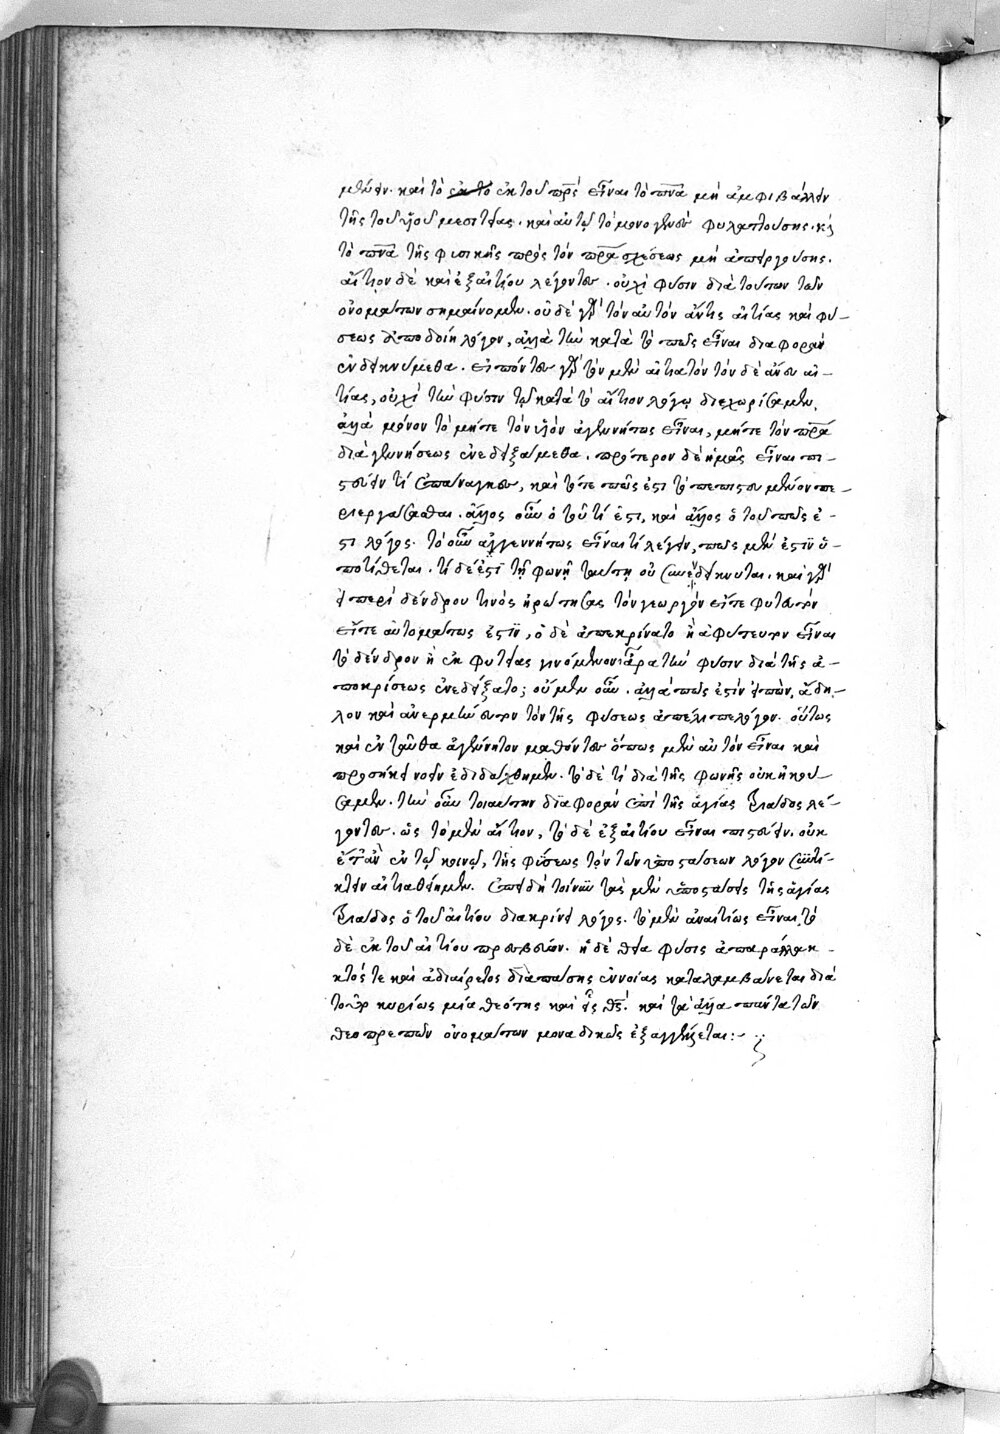 μένειν. καὶ τὸ ἐκ τοῦ πρς εἶναι τὸ πνα μὴ ἀμφιβάλλειν
τῆς τοῦ υἱοῦ μεσιτείας. καὶ αὐτῶ τὸ μονογενὲς φυλαττούσης. κ
τὸ πνα τῆς φυσικῆς πρὸς τὸν πρα σχέσεως μὴ ἀπειργούσης.
αἴτιον δὲ καὶ ἐξ αἰτίου λέγοντες. οὐχὶ φύσιν διὰ τούτων τῶν
ὀνομάτων σημαίνομεν. οὐδὲ γὰρ τὸν αὐτὸν ἄν τις αἰτίας καὶ φύ-
σεως ἀποδοίη λόγον, ἀλλὰ τὴν κατὰ τὸ πῶς εἶναι διαφορὰν
ἐνδεικνύμεθα. εἰπόντες γὰρ τὸν μὲν αἰτιατὸν τὸν δὲ ἄνευ αἰ-
τίας, οὐχὶ τὴν φύσιν τῶ κατὰ τὸ αἴτιον λόγω διεχωρίσαμεν,
ἀλλὰ μόνον τὸ μήτε τὸν υἱὸν ἀγεννήτως εἶναι, μήτε τὸν πρα
διὰ γεννήσεως ἐνεδειξάμεθα. πρότερον δὲ ἡμᾶς εἶναί τι πι-
στεύειν τί ἐπάναγκες, καὶ τότε πῶς ἐστι τὸ πεπιστευμένον πε-
ριεργάσασθαι. ἄλλος οὖν ὁ τοῦ τί ἐστι, καὶ ἄλλος ὁ τοῦ πῶς ἐ-
στι λόγος. τὸ οὖν ἀγεννήτως εἶναί τι λέγειν, πῶς μέν ἐστιν ὑ-
ποτίθεται. τί δέ ἐστι τῆ φωνῆ ταύτη οὐ συνενδείκνυται. καὶ γὰρ
εἰ περὶ δένδρου τινὸς ἠρώτησας τὸν γεωργὸν εἴτε φυτευτὸν
εἴτε αὐτομάτως ἐστὶν, ὁ δὲ ἀπεκρίνατο ἢ ἀφύτευτον εἶναι
τὸ δένδρον ἢ ἐκ φυτείας γινόμενον ἆρα τὴν φύσιν διὰ τῆς ἀ-
ποκρίσεως ἐνεδείξατο; οὐμενοῦν. ἀλλὰ πῶς ἐστὶν εἰπὼν, ἄδη-
λον καὶ ἀνερμήνευτον τὸν τῆς φύσεως ἀπέλιπε λόγον. οὕτως
καὶ ἐνταῦθα ἀγέννητον μαθόντες ὅπως μὲν αὐτὸν εἶναι καὶ
προσήκει νοεῖν ἐδιδάχθημεν. τὸ δὲ τί διὰ τῆς φωνῆς οὐκ ἠκού-
σαμεν. τὴν οὖν τοιαύτην διαφορὰν ἐπὶ τῆς ἁγίας τριάδος λέ-
γοντες. ὡς τὸ μὲν αἴτιον, τὸ δὲ ἐξ αἰτίου εἶναι πιστεύειν. οὐκ
ἔτ' ἂν ἐν τῶ κοινῶ, τῆς φύσεως τὸν τῶν ὑποστάσεων λόγον συντή-
κειν αἰτιαθείημεν. ἐπειδὴ τοίνυν τὰς μὲν ὑποστάσεις τῆς ἁγίας
τριάδος ὁ τοῦ αἰτίου διακρίνει λόγος. τὸ μὲν ἀναιτίως εἶναι, τὸ
δὲ ἐκ τοῦ αἰτίου πρεσβεύων. ἡ δὲ θεία φύσις ἀπαράλλακ-
κτός τε καὶ ἀδιαίρετος διαπάσης ἐννοίας καταλαμβάνεται διὰ
τοῦτο κυρίως μία θεότης καὶ εἷς θς. καὶ τὰ ἄλλα πάντα τῶν
θεοπρεπῶν ὀνομάτων μοναδικῶς ἐξαγγέλλεται:-